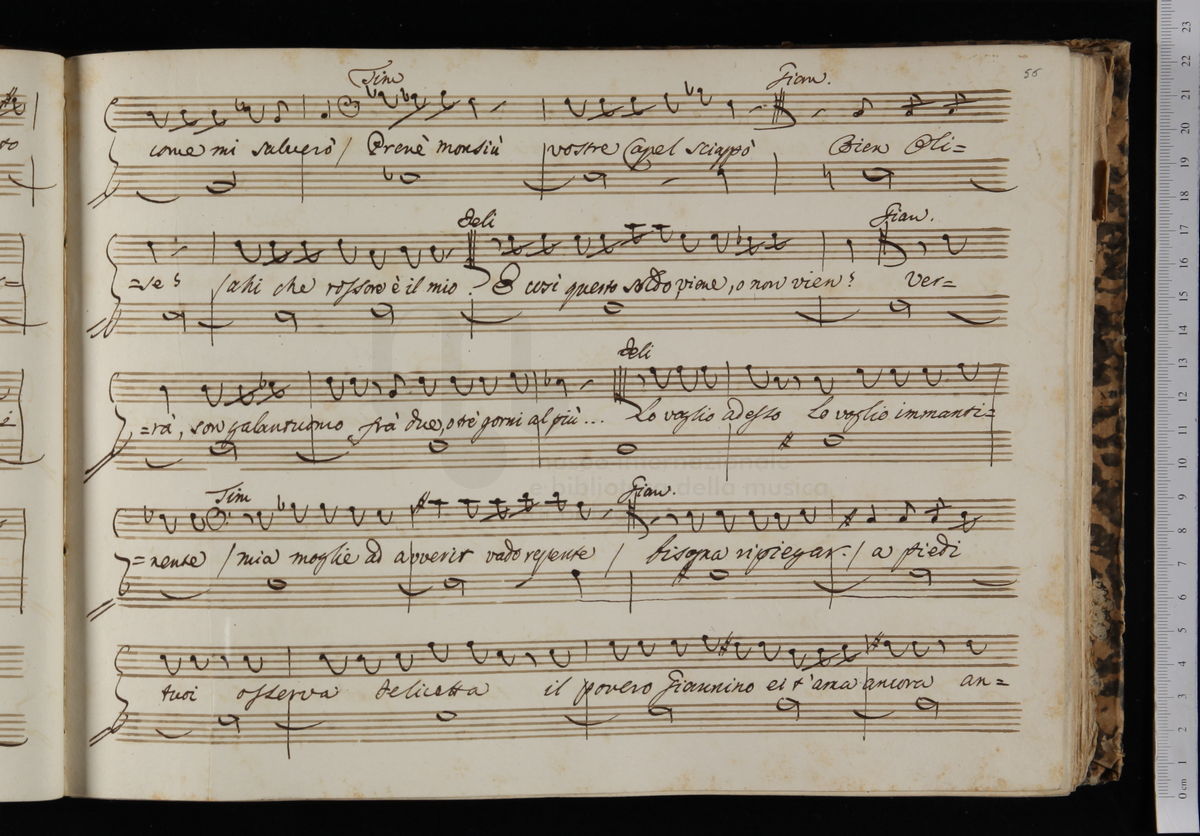 56
Tim Gian.
come mi salverò / Prenè monsiù vostre Capel sciappò Bien Obli=
Deli Gian.
=se? / ahi che rossore è il mio. E così questo soldo viene, o non vien? Ver=
Deli
=rà, son galantuomo frà due, o trè giorni al più... Lo voglio adesso Lo voglio immanti=
Tim Gian.
=nente / mia moglie ad avverir vado / bisogna ripiegar. / a piedi
tuoi osserva Delicata il povero Giannino ei t'ama ancora an=
museo internazionale
e biblioteca della musica